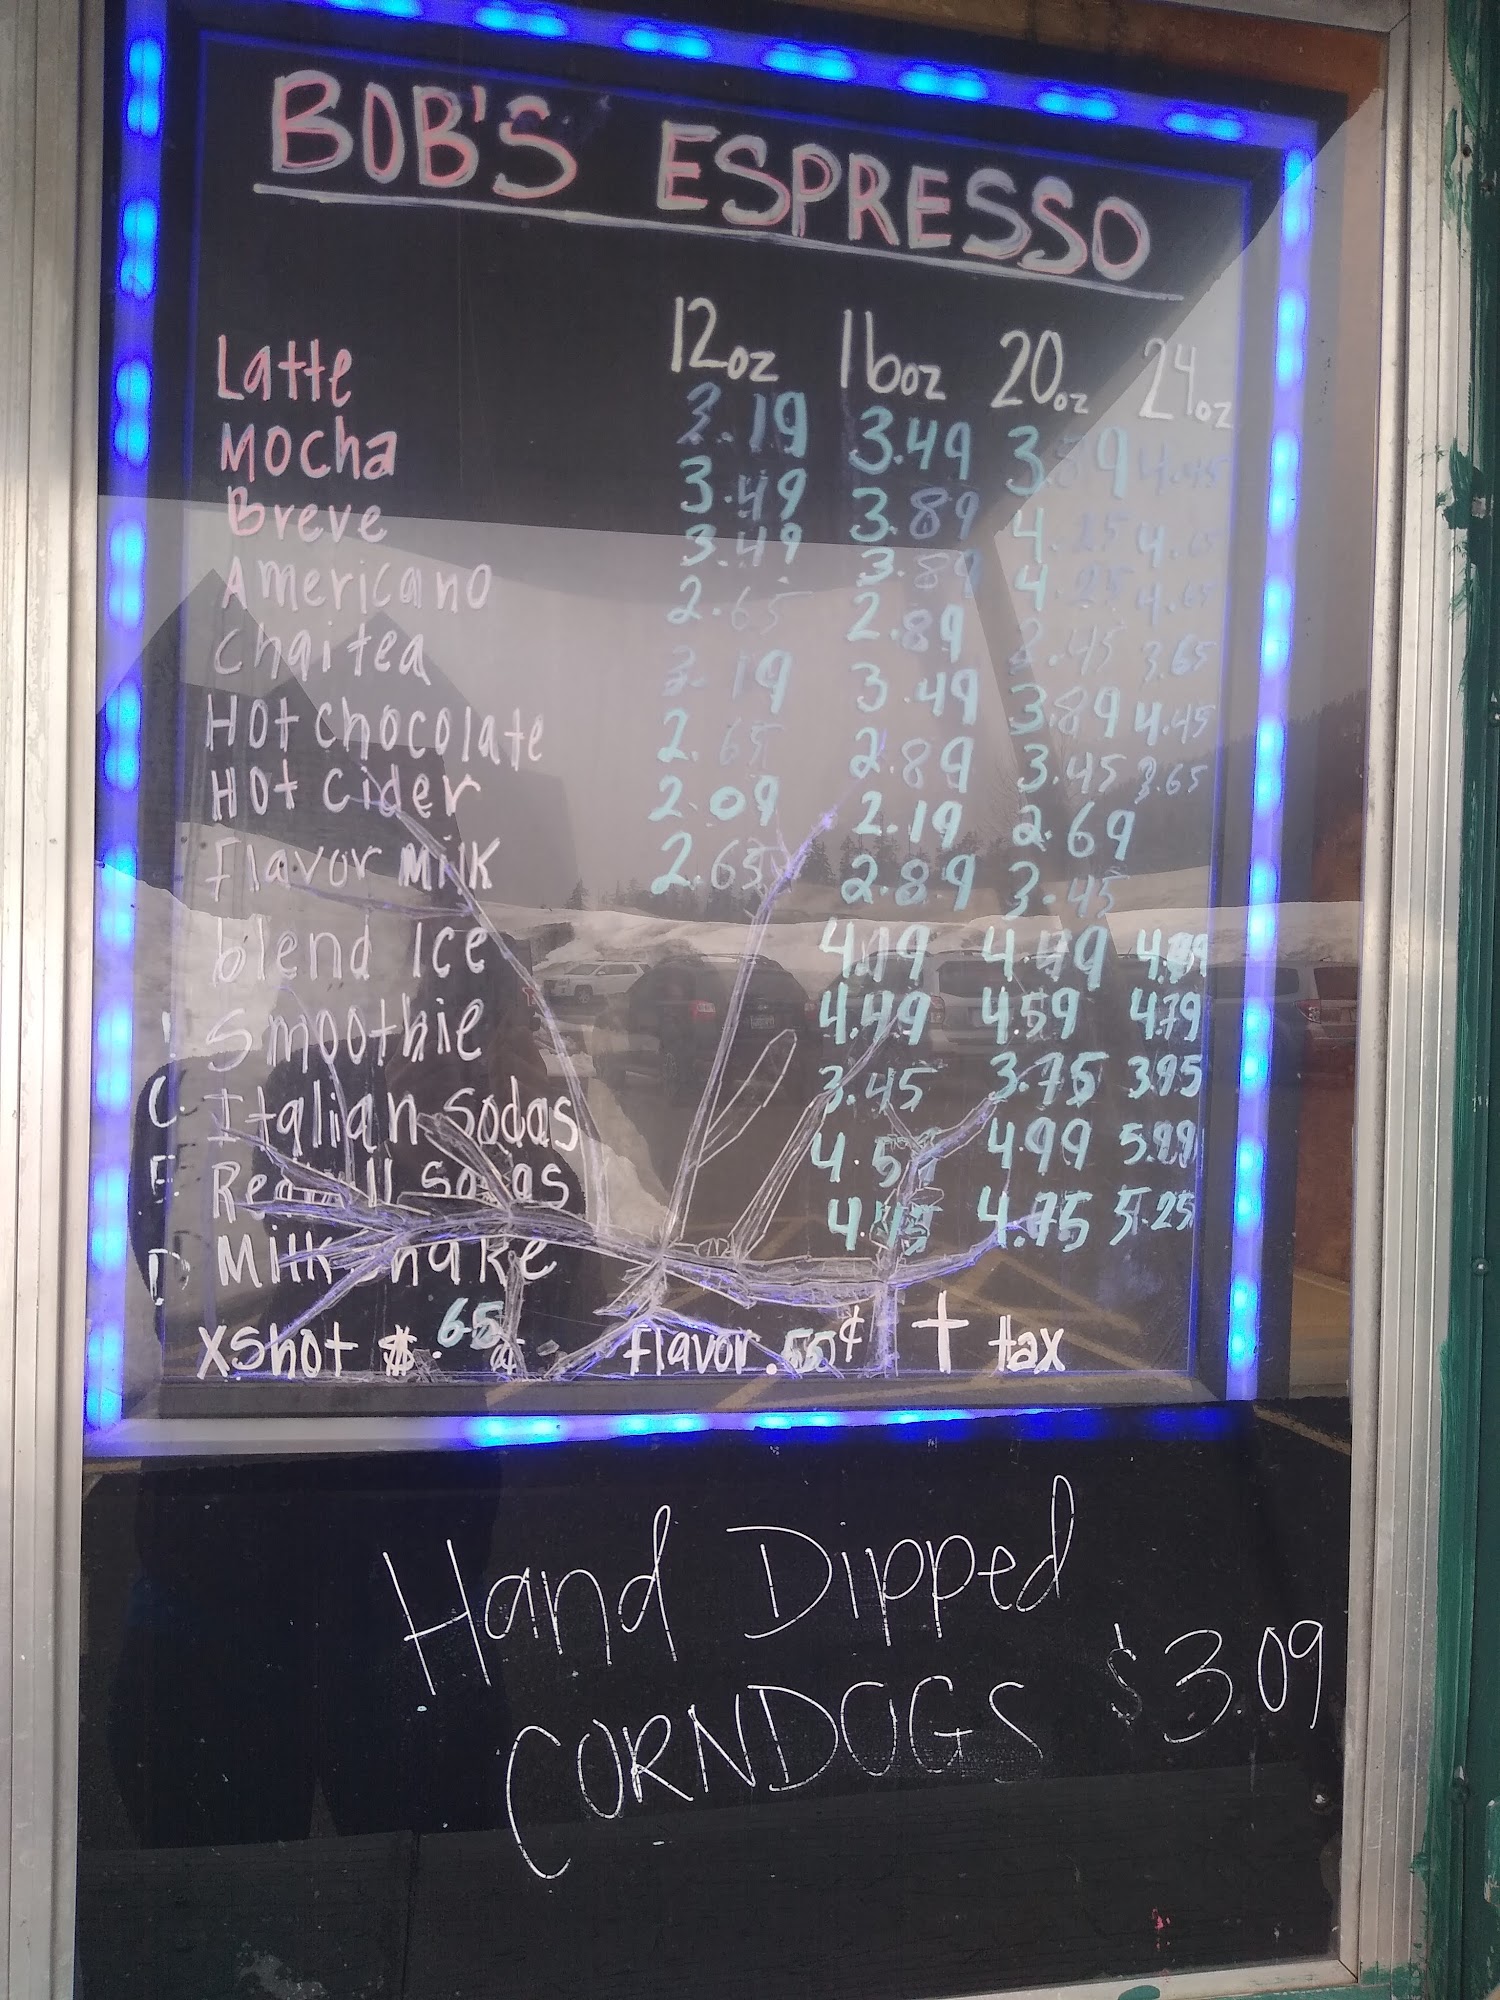 BOB'S ESPRESSO
12oz 16oz 20oz 24oz
Latte 3.19 3.49 3.89 4.45
Mocha 3.49 3.89 4.25 4.65
Breve 3.49 3.89 4.25 4.65
Americano 2.65 2.89 3.45 3.65
Chai tea 3.19 3.49 3.89 4.45
Hot chocolate 2.65 2.89 3.45 3.65
Hot Cider 2.09 2.19 2.69
Flavor Milk 2.65 2.89 3.45
blend Ice 4.19 4.49
Smoothie 4.49 4.59 4.79
ICED
Italian Sodas 3.45 3.75 3.95
4.99
Milkshake 4.75 5.25
XShot $.65 flavor .55¢ + tax
Hand Dipped
CORNDOGS $3.09